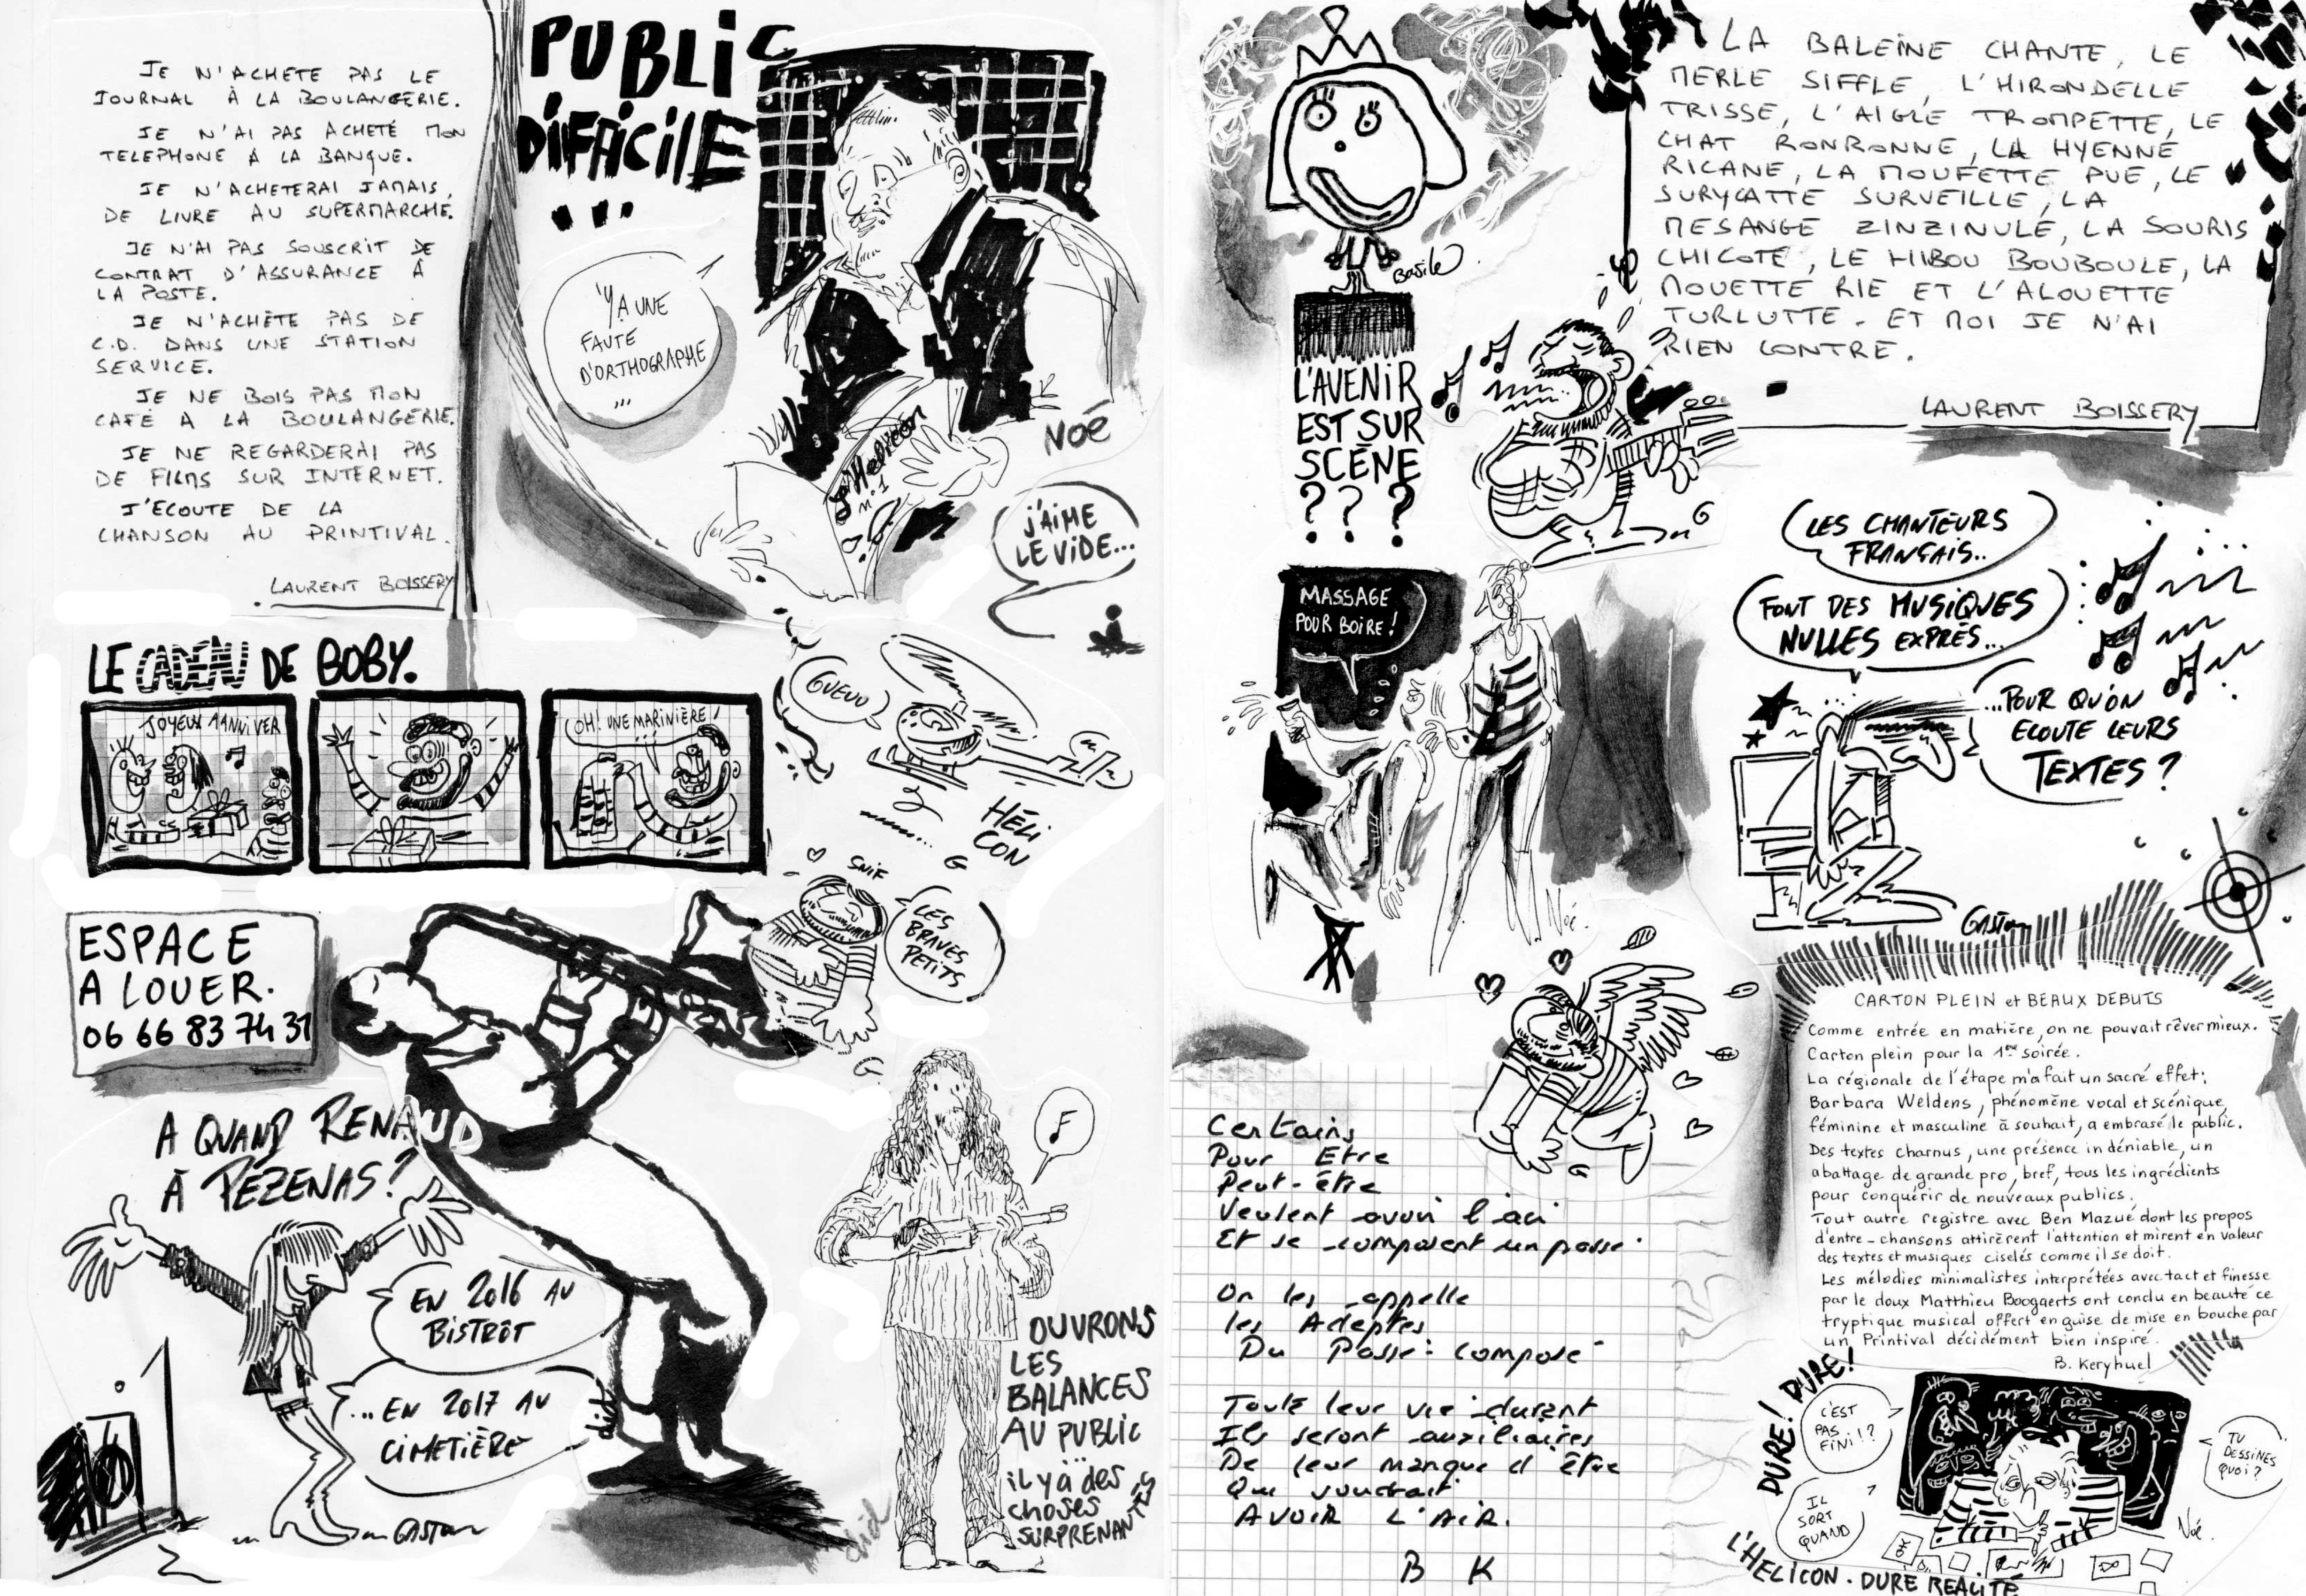 JE N'ACHETE PAS LE
JOURNAL À LA BOULANGERIE.
JE N'AI PAS ACHETÉ MON
TELEPHONE A LA BANQUE.
JE N'ACHETERAI JAMAIS
DE LIVRE AU SUPERMARCHÉ.
JE N'AI PAS SOUSCRIT DE
CONTRAT D'ASSURANCE À
LA POSTE.
JE N'ACHÈTE PAS DE
C.D. DANS UNE STATION
SERVICE.
JE NE BOIS PAS MON
CAFÉ A LA BOULANGERIE.
JE NE REGARDERAI PAS
DE FILMS SUR INTERNET.
J'ECOUTE DE LA
CHANSON AU PRINTIVAL.
LAURENT BOISSERY
PUBLIC
DIFFICILE
...
'Y A UNE
FAUTE
D'ORTHOGRAPHE
...
L'Helicon
N°1
NOÉ
J'AIME
LE VIDE...
LE CADEAU DE BOBY.
JOYEUX ANNIVER
OH! UNE MARINIÈRE!
GUEUU
HÉLI
CON
G
SNIF
LES
BRAVES
PETITS
G
ESPACE
A LOUER.
06 66 83 74 31
A QUAND RENAUD
À PÉZENAS?
EN 2016 AU
BISTROT
...EN 2017 AU
CIMETIÈRE
GASTON
OUVRONS
LES
BALANCES
AU PUBLIC
...
il y à des
choses
SURPRENANTES
Basile
L'AVENIR
EST SUR
SCÈNE
? ? ?
LA BALEINE CHANTE, LE
MERLE SIFFLE, L'HIRONDELLE
TRISSE, L'AIGLE TROMPETTE, LE
CHAT RONRONNE, LA HYENNE
RICANE, LA MOUFETTE PUE, LE
SURYCATTE SURVEILLE, LA
MESANGE ZINZINULE, LA SOURIS
CHICOTE, LE HIBOU BOUBOULE, LA
MOUETTE RIE ET L'ALOUETTE
TURLUTTE. ET MOI JE N'AI
RIEN CONTRE.
LAURENT BOISSERY
G
MASSAGE
POUR BOIRE!
Noé.
LES CHANTEURS
FRANÇAIS..
FONT DES MUSIQUES
NULLES EXPRÈS...
...POUR QU'ON
ECOUTE LEURS
TEXTES?
GASTON
G
Certains
Pour Être
Peut-être
Veulent avoir l'air
Et se composent un passé
On les appelle
les Adeptes
Du Passé composé
Toute leur vie durant
Ils seront auxiliaires
De leur manque d'être
Qui voudrait
AVOIR L'AIR.
B K
CARTON PLEIN et BEAUX DEBUTS
Comme entrée en matière, on ne pouvait rêver mieux.
Carton plein pour la 1ère soirée.
La régionale de l'étape m'a fait un sacré effet:
Barbara Weldens, phénomène vocal et scénique,
féminine et masculine à souhait, a embrasé le public.
Des textes charnus, une présence indéniable, un
abattage de grande pro, bref, tous les ingrédients
pour conquérir de nouveaux publics.
Tout autre registre avec Ben Mazué dont les propos
d'entre-chansons attirèrent l'attention et mirent en valeur
des textes et musiques ciselés comme il se doit.
Les mélodies minimalistes interprétées avec tact et finesse
par le doux Matthieu Boogaerts ont conclu en beauté ce
tryptique musical offert en guise de mise en bouche par
un Printival décidément bien inspiré.
B. Keryhuel
DURE! DURE!
C'EST
PAS
FINI!?
TU
DESSINES
QUOI?
IL
SORT
QUAND
Noé.
L'HELICON. DURE REALITÉ